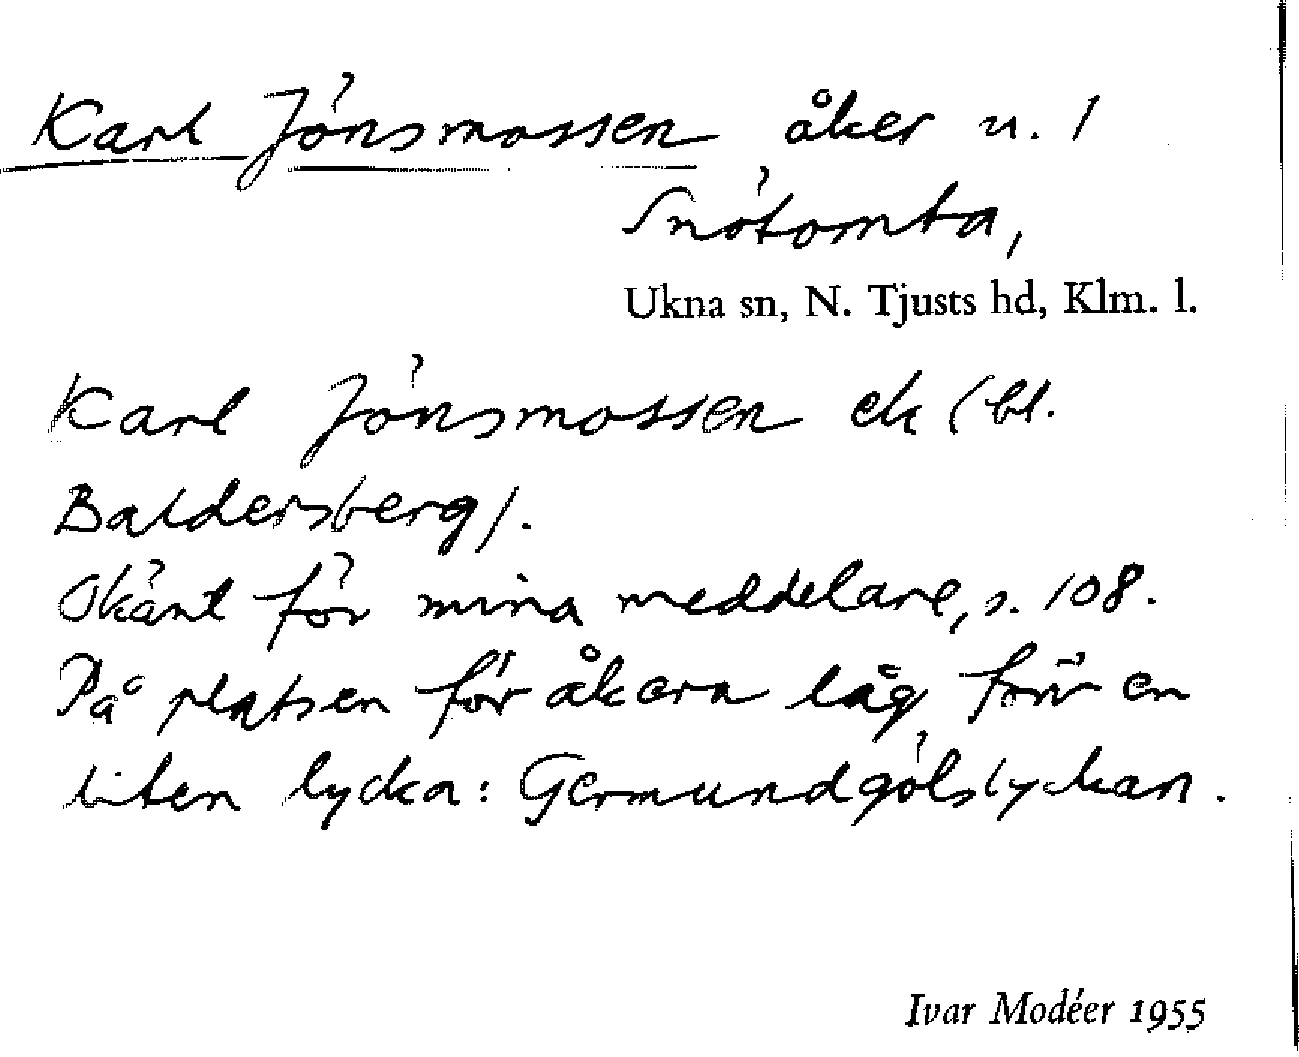 Karl Jönsmossen åker u. 1
Snötomta,
Ukna sn, N. Tjusts hd, Klm. l.
Karl Jönsmossen ek (bl.
Baldersberg).
Okänt för mina meddelare, s. 108.
På platsen för åkern låg förr en
liten lycka: Germundgölslyckan.
Ivar Modéer 1955